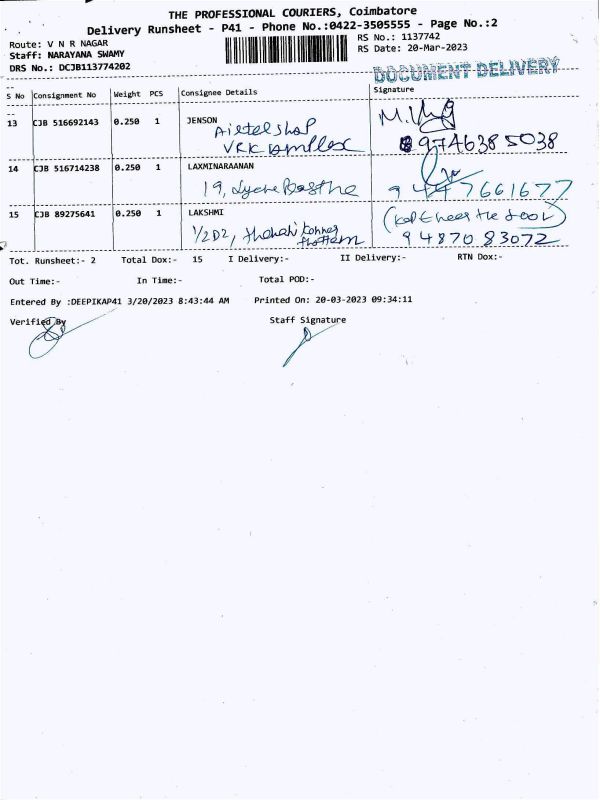 THE PROFESSIONAL COURIERS, Coimbatore
Delivery Runsheet - P41 - Phone No.:0422-3505555 - Page No.:2
Route: V N R NAGAR
RS No.: 1137742
Staff: NARAYANA SWAMY
RS Date: 20-Mar-2023
DRS No.: DCJB113774202
DOCUMENT DELIVERY
S No Consignment No Weight PCS Consignee Details Signature
13 CJB 516692143 0.250 1 JENSON
Airtel shop
VRK
9746385038
14 CJB 516714238 0.250 1 LAXMINARAANAN
19,
9447661677
15 CJB 89275641 0.250 1 LAKSHMI
(kept near the door)
1/2D2,
9487083072
Tot. Runsheet:- 2 Total Dox:- 15 I Delivery:- II Delivery:- RTN Dox:-
Out Time:- In Time:- Total POD:-
Entered By :DEEPIKAP41 3/20/2023 8:43:44 AM Printed On: 20-03-2023 09:34:11
Verified By Staff Signature